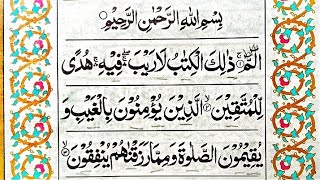 بِسْمِ اللهِ الرَّحْمٰنِ الرَّحِيْمِ
الٓمّٓ ۚ ذٰلِكَ الْكِتٰبُ لَا رَيْبَ ۛۚ فِيْهِ ۛۚ هُدًى
لِّلْمُتَّقِيْنَ ۙ الَّذِيْنَ يُؤْمِنُوْنَ بِالْغَيْبِ وَ
يُقِيْمُوْنَ الصَّلٰوةَ وَمِمَّا رَزَقْنٰهُمْ يُنْفِقُوْنَ ۙ